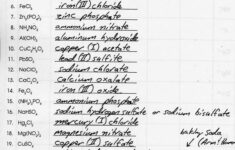 6. FeCl₃ iron(III) chloride
7. Zn₃(PO₄)₂ zinc phosphate
8. NH₄NO₃ ammonium nitrate
9. Al(OH)₃ aluminum hydroxide
10. acetate
11. PbSO₃ lead (II) sulfite
12. NaClO₃ sodium chlorate
13. CaC₂O₄ calcium oxalate
14. Fe₂O₃ iron (III) oxide
15. (NH₄)₃PO₄ ammonium phosphate
16. NaHSO₄ sodium hydrogen sulfate or sodium bisulfate
17. Hg₂Cl₂ mercury (I) chloride
18. Mg(NO₃)₂ magnesium nitrate
19. CuSO₄ copper (II) sulfate